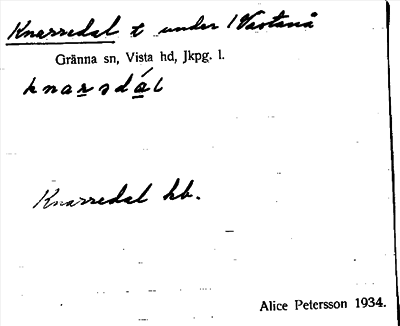 Knarredal t under 1 Västanå
Gränna sn, Vista hd, Jkpg. l.
knarsdál
Knarredal hb.
Alice Petersson 1934.